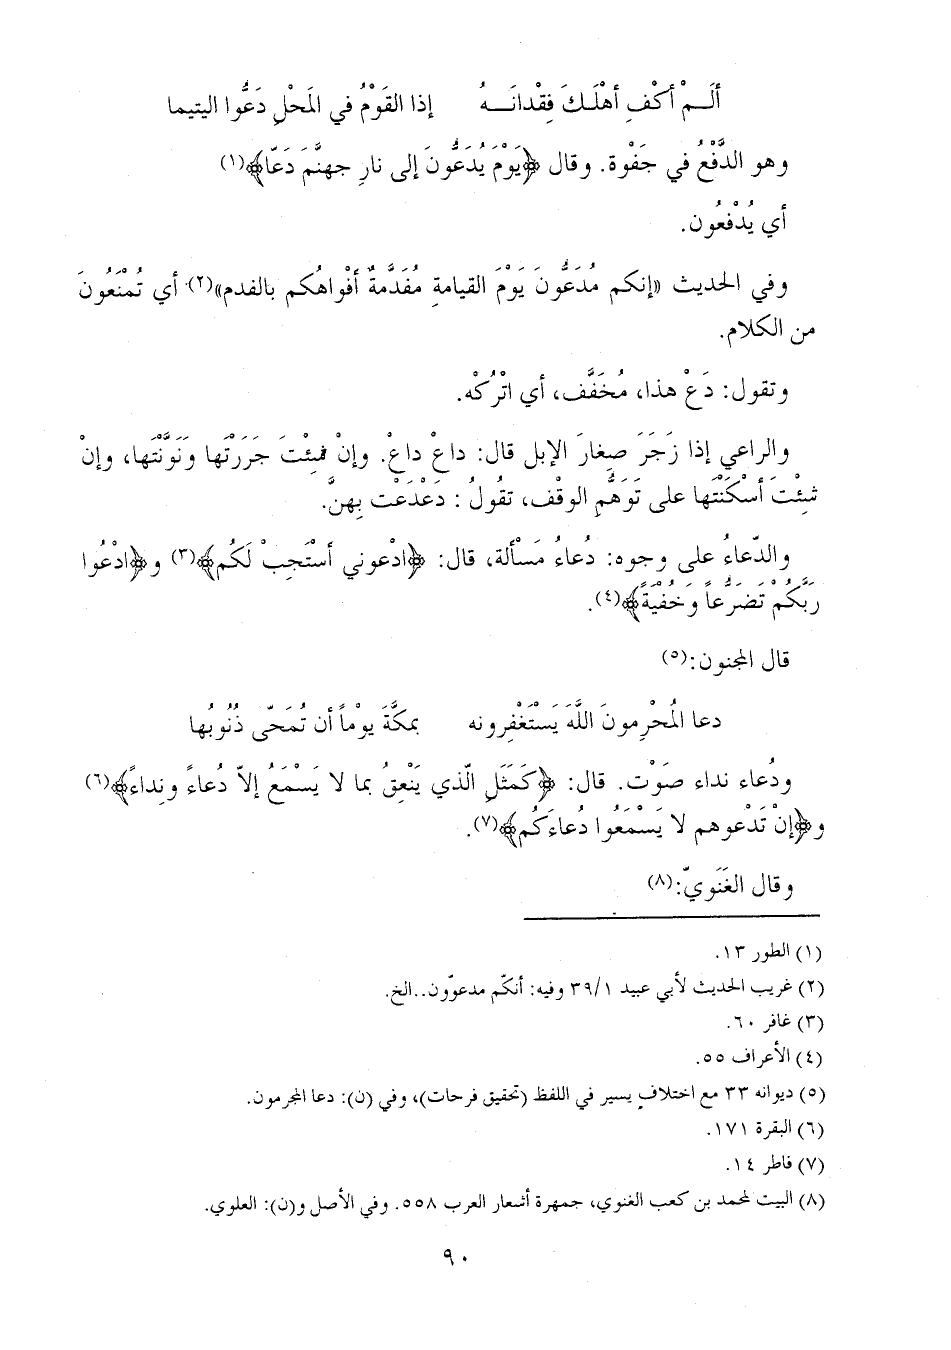 أَلَـمْ أكْفِ أهْلَـكَ فِقْدانَـهُ إذا القَوْمُ في المَحْلِ دَعُّوا اليتيما
وهو الدَّفْعُ في جَفْوة. وقال ﴿يَوْمَ يُدَعُّونَ إلى نارِ جهنَّمَ دَعّا﴾(١)
أي يُدْفَعُون.
وفي الحديث «إنكم مُدَعُّونَ يَوْمَ القيامةِ مُفَدَّمةٌ أفْواهُكم بالفدم»(٢). أي تُمْنَعُونَ
من الكلام.
وتقول: دَعْ هذا، مُخَفَّف، أي اتْرُكْه.
والراعي إذا زَجَرَ صِغارَ الإبل قال: داعْ داعْ. وإنْ شِئْتَ جَرَرْتَها وَنَوَّنْتَها، وإنْ
شِئْتَ أسْكَنْتَها على تَوَهُّمِ الوقْف، تقُولُ: دَعْدَعْت بِهنَّ.
والدّعاءُ على وجوه: دُعاءُ مَسْألة، قال: ﴿ادْعوني أسْتَجِبْ لَكُم﴾(٣) و﴿ادْعُوا
رَبَّكُمْ تَضَرُّعاً وَخُفْيَةً﴾(٤).
قال المجنون:(٥)
دعا المُحْرِمونَ اللَّهَ يَسْتَغْفِرونه بمكَّةَ يوْماً أن تُمَحّى ذُنُوبُها
ودُعاء نداء صَوْت. قال: ﴿كَمَثَلِ الّذي يَنْعِقُ بما لا يَسْمَعُ إلاّ دُعاءً ونِداءً﴾(٦)
و﴿إنْ تَدْعوهم لا يَسْمَعُوا دُعاءَكُم﴾(٧).
وقال الغَنَويّ:(٨)
(١) الطور ١٣.
(٢) غريب الحديث لأبي عبيد ٣٩/١ وفيه: أنكّم مدعوّون..الخ.
(٣) غافر ٦٠.
(٤) الأعراف ٥٥.
(٥) ديوانه ٣٣ مع اختلافٍ يسير في اللفظ (تحقيق فرحات)، وفي (ن): دعا المجرمون.
(٦) البقرة ١٧١.
(٧) فاطر ١٤.
(٨) البيت لمحمد بن كعب الغنوي، جمهرة أشعار العرب ٥٥٨. وفي الأصل و(ن): العلوي.
٩٠